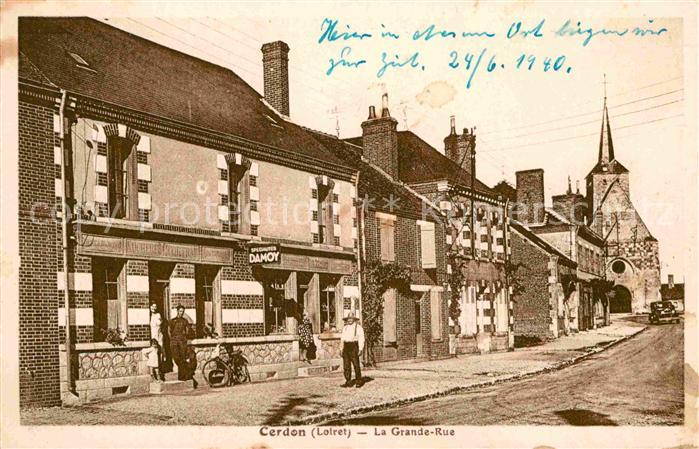 Hier in diesem Ort liegen wir
zur Zeit. 24/6. 1940.
SPÉCIALITÉS
DAMOY
Cerdon (Loiret) — La Grande-Rue
copyright protection